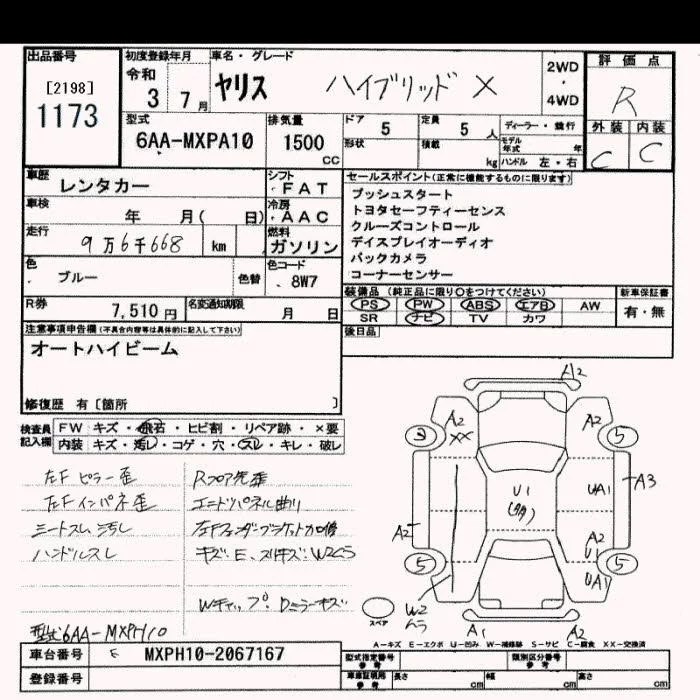 出品番号
[2198]
1173
初度登録年月
令和
3 7月
車名・グレード
ヤリス ハイブリッド X
2WD
・
4WD
評価点
R
外装 内装
C C
型式
6AA-MXPA10
排気量
1500
cc
ドア
5
定員
5 人
形状
積載
kg
ディーラー・並行
モデル年式 年
ハンドル 左・右
車歴
レンタカー
シフト
FAT
車検
年 月( 日)
冷房
AAC
走行
9万6千668 km
燃料
ガソリン
色
ブルー
色替
色コード
8W7
R券
7,510円
名変通知期限
月 日
セールスポイント(正常に機能するものに限ります)
プッシュスタート
トヨタセーフティーセンス
クルーズコントロール
ディスプレイオーディオ
バックカメラ
コーナーセンサー
装備品 (純正品に限り○をつけてください)
PS PW ABS エアB AW
SR ナビ TV カワ
新車保証書
有・無
後日品
注意事項申告欄(不具合内容等は具体的に記入して下さい)
オートハイビーム
修復歴 有〔箇所 〕
検査員
記入欄
FW キズ・飛石・ヒビ割・リペア跡・×要
内装 キズ・汚レ・コゲ・穴・スレ・キレ・破レ
左Fピラー歪
左Fインパネ歪
シートスレ 汚れ
ハンドルスレ
Rフロア先歪
エンドパネル曲り
キズ・E・スリキズ・W2くら
Wキャップ・Dミラーキズ
型式6AA-MXPH10
A2
A2
XX
A2
3
5
U1
(多)
UA1
A3
A2
A2
U1
UA1
5
5
W2
A1
A2
スペア
A-キズ E-エクボ U-凹み W-補修跡 S-サビ C-腐食 XX-交換済
車台番号
E MXPH10-2067167
登録番号
型式指定番号
参考
類別区分番号
参考
車庫証明用
参考
長さ cm
幅 cm
高さ cm